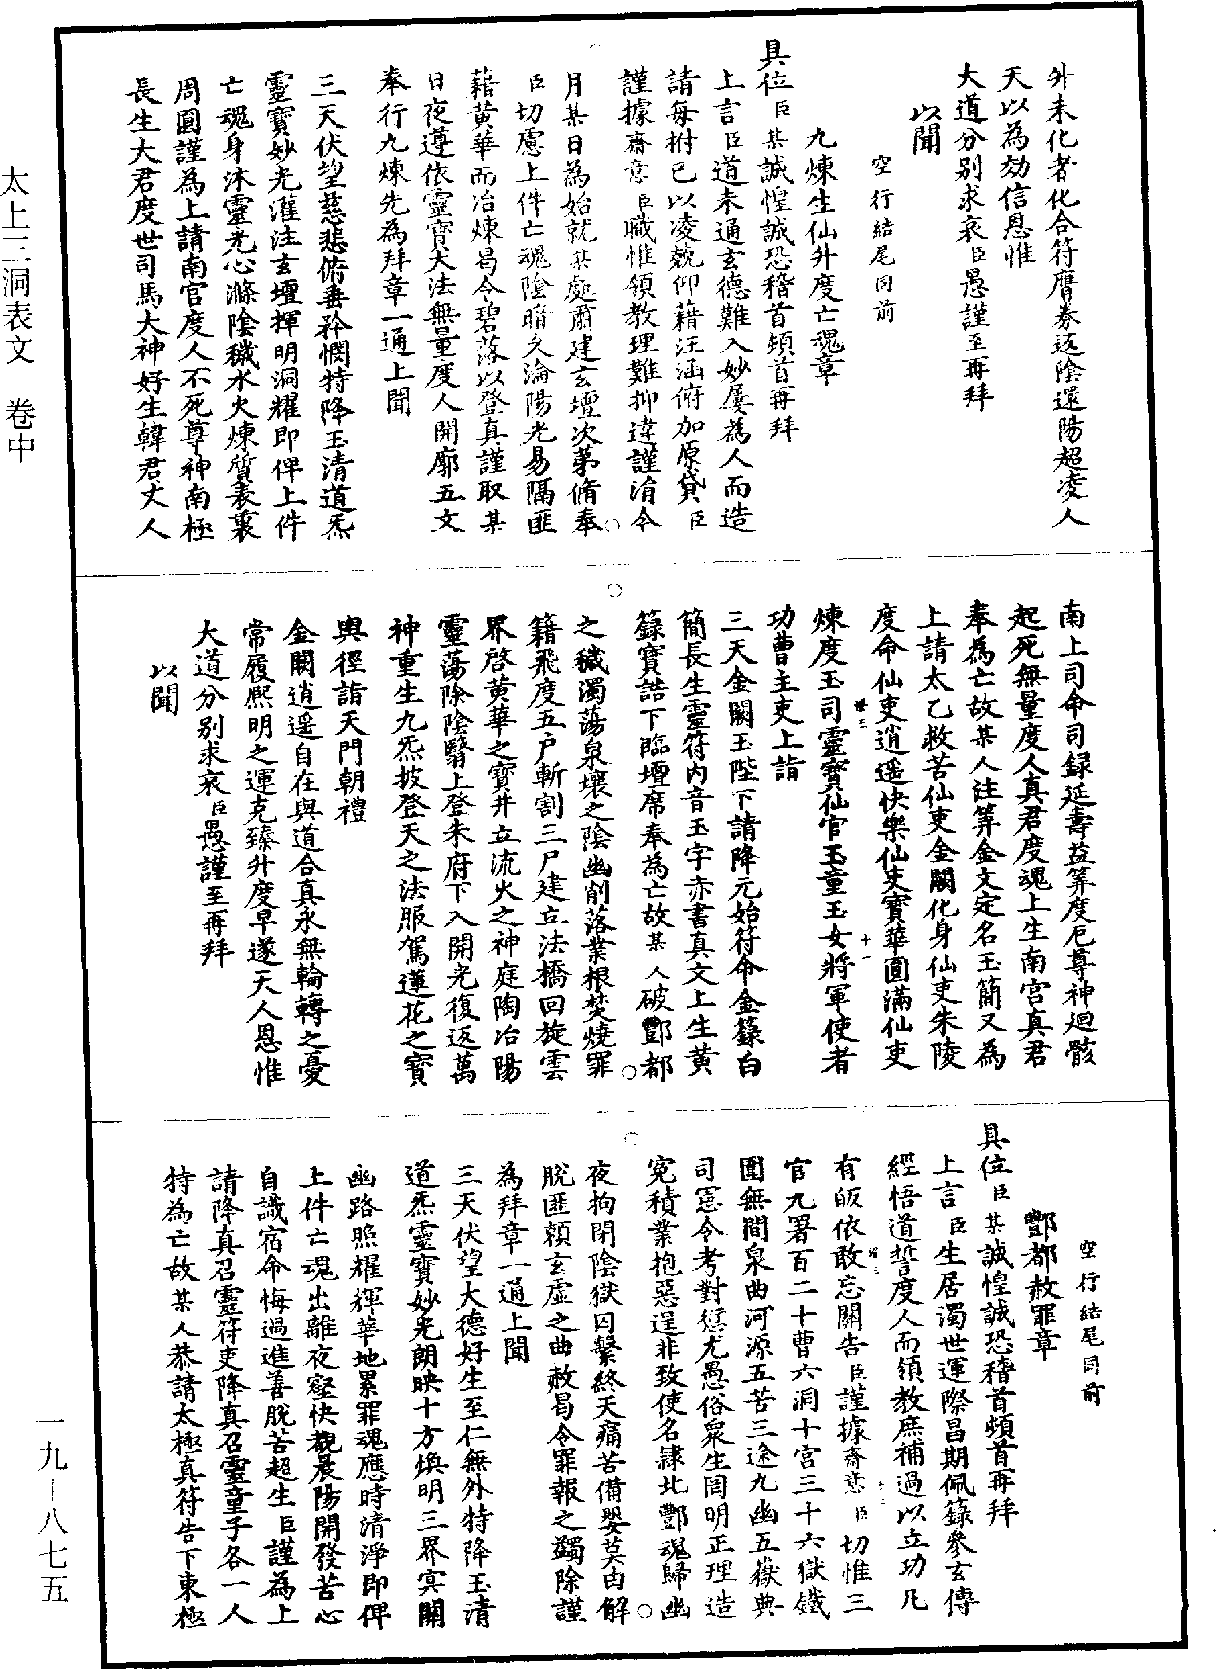 太上三洞表文　卷中
外未化者化合符膺券返陰還陽超凌人
天以為効信恩惟
大道分別求哀臣愚謹至再拜
以聞
空行結尾同前
九煉生仙升度亡魂章
具位臣某誠惶誠恐稽首頓首再拜
上言臣道未通玄德難入妙屢為人而造
請每拊己以凌兢仰藉汪涵俯加原貸臣
謹據齋意臣職惟領教理難抑違謹涓今
月某日為始就某處肅建玄壇次第脩奉
臣切慮上件亡魂陰暗久淪陽光易隔匪
藉黃華而冶煉曷令碧落以登真謹取某
日夜遵依靈寶大法無量度人開廓五文
奉行九煉先為拜章一通上聞
三天伏望慈悲俯垂矜憫特降玉清道炁
靈寶妙光灌注玄壇揮明洞耀即俾上件
亡魂身沐靈光心滌陰穢水火煉質表裏
周圓謹為上請南宮度人不死尊神南極
長生大君度世司馬大神好生韓君丈人
南上司命司錄延壽益筭度厄尊神迴骸
起死無量度人真君度魂上生南宮真君
奉為亡故某人注筭金文定名玉簡又為
上請太乙救苦仙吏金闕化身仙吏朱陵
度命仙吏逍遥快樂仙吏寶華圓滿仙吏
煉度玉司靈寶仙官玉童玉女將軍使者
功曹主吏上詣
三天金闕玉陛下請降元始符命金籙白
簡長生靈符內音玉字赤書真文上生黃
籙寶誥下臨壇席奉為亡故某人破酆都
之穢濁蕩泉壤之陰幽削落業根焚燒罪
籍飛度五户斬割三尸建立法橋回旋雲
界啓黃華之寶井立流火之神庭陶冶陽
靈蕩除陰翳上登朱府下入開光復返萬
神重生九炁披登天之法服駕蓮花之寶
輿徑詣天門朝禮
金闕逍遥自在與道合真永無輪轉之憂
常履熙明之運克臻升度早遂天人恩惟
大道分別求哀臣愚謹至再拜
以聞
空行結尾同前
酆都赦罪章
具位臣某誠惶誠恐稽首頓首再拜
上言臣生居濁世運際昌期佩籙參玄傳
經悟道誓度人而領教庶補過以立功凡
有皈依敢忘關告臣謹據齋意臣切惟三
官九署百二十曹六洞十宮三十六獄鐵
圍無間泉曲河源五苦三途九幽五嶽典
司憲令考對愆尤愚俗衆生罔明正理造
冤積業抱惡逞非致使名隸北酆魂歸幽
夜拘閉陰獄囚繫終天痛苦備嬰莫由解
脫匪賴玄虛之曲赦曷令罪報之蠲除謹
為拜章一通上聞
三天伏望大德好生至仁無外特降玉清
道炁靈寶妙光朗映十方煥明三界冥關
幽路照耀輝華地累罪魂應時清淨即俾
上件亡魂出離夜壑快覩晨陽開發苦心
自識宿命悔過進善脫苦超生臣謹為上
請降真召靈符吏降真召靈童子各一人
特為亡故某人恭請太極真符告下東極
一九—八七五